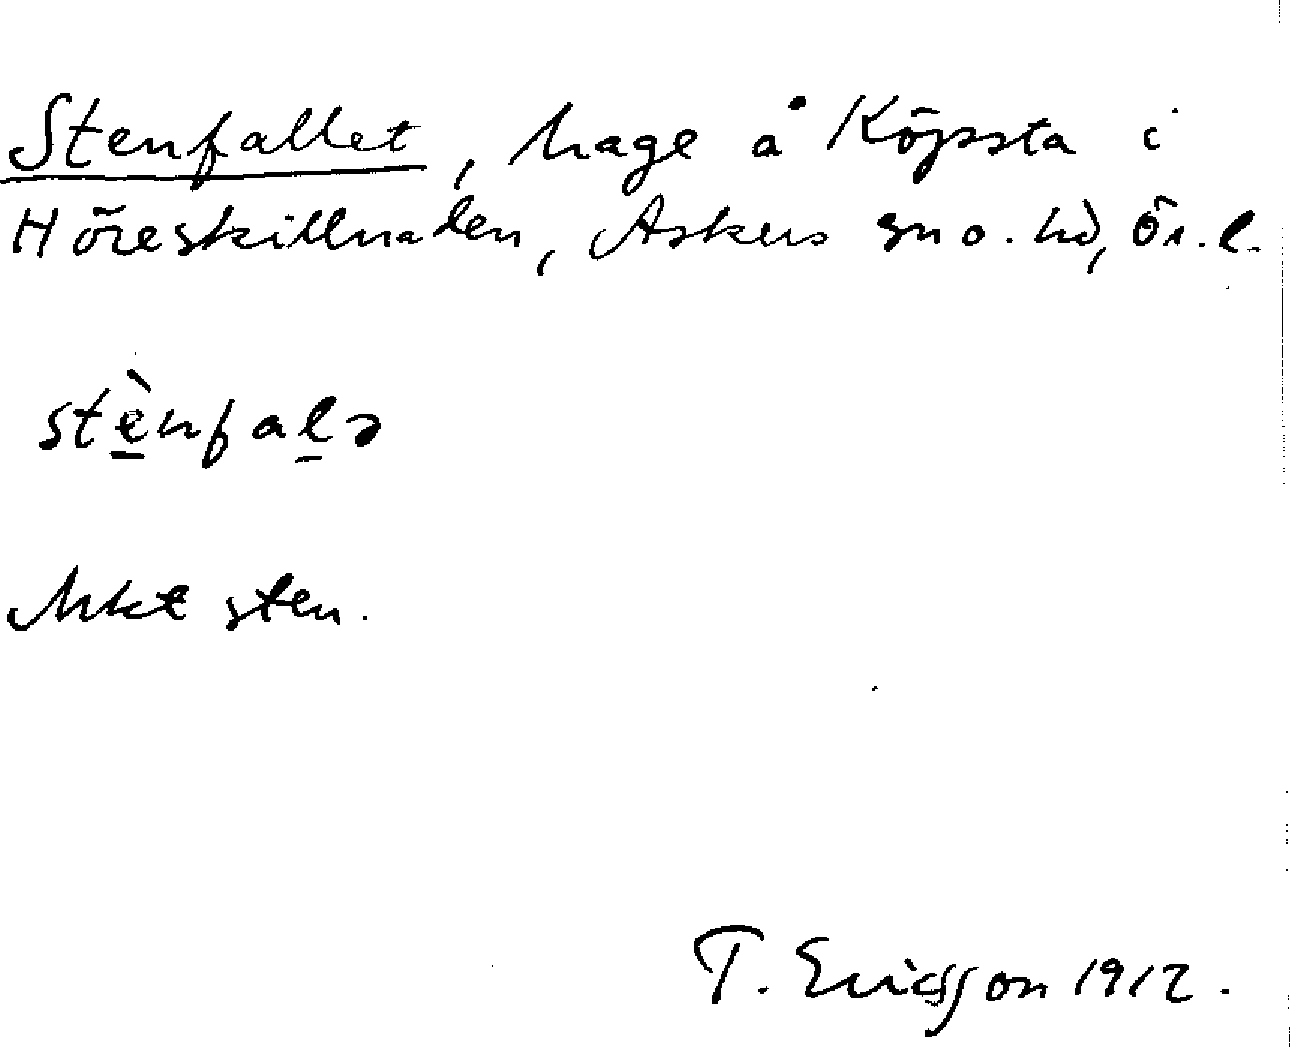 Stenfallet, hage å Köpsta i
Höreskillnaden, Askers sn o. hd, Ör. l.
stè̱nfaḻə
Mkt sten.
T. Ericsson 1912.